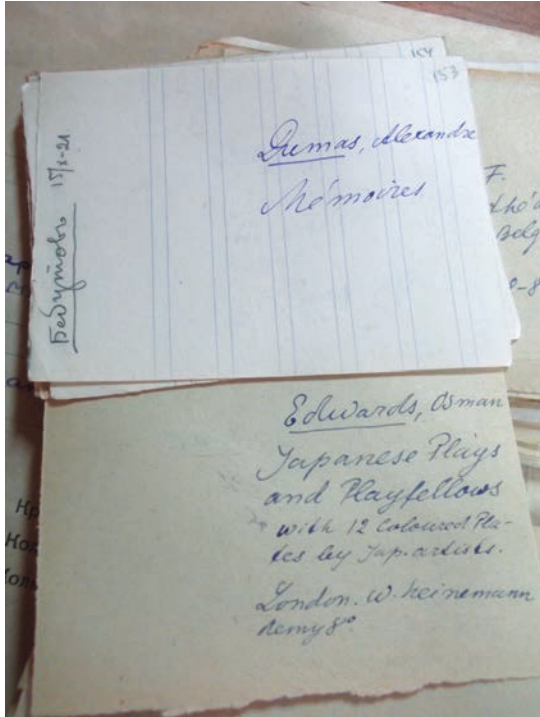 154
153
Dumas, Alexandre
Mémoires
15/X-21
F.
Edwards, Osman
Japanese Plays
and Playfellows
with 12 Coloured Pla-
tes by Jap. artists.
London. W. Heinemann
demy 8°.